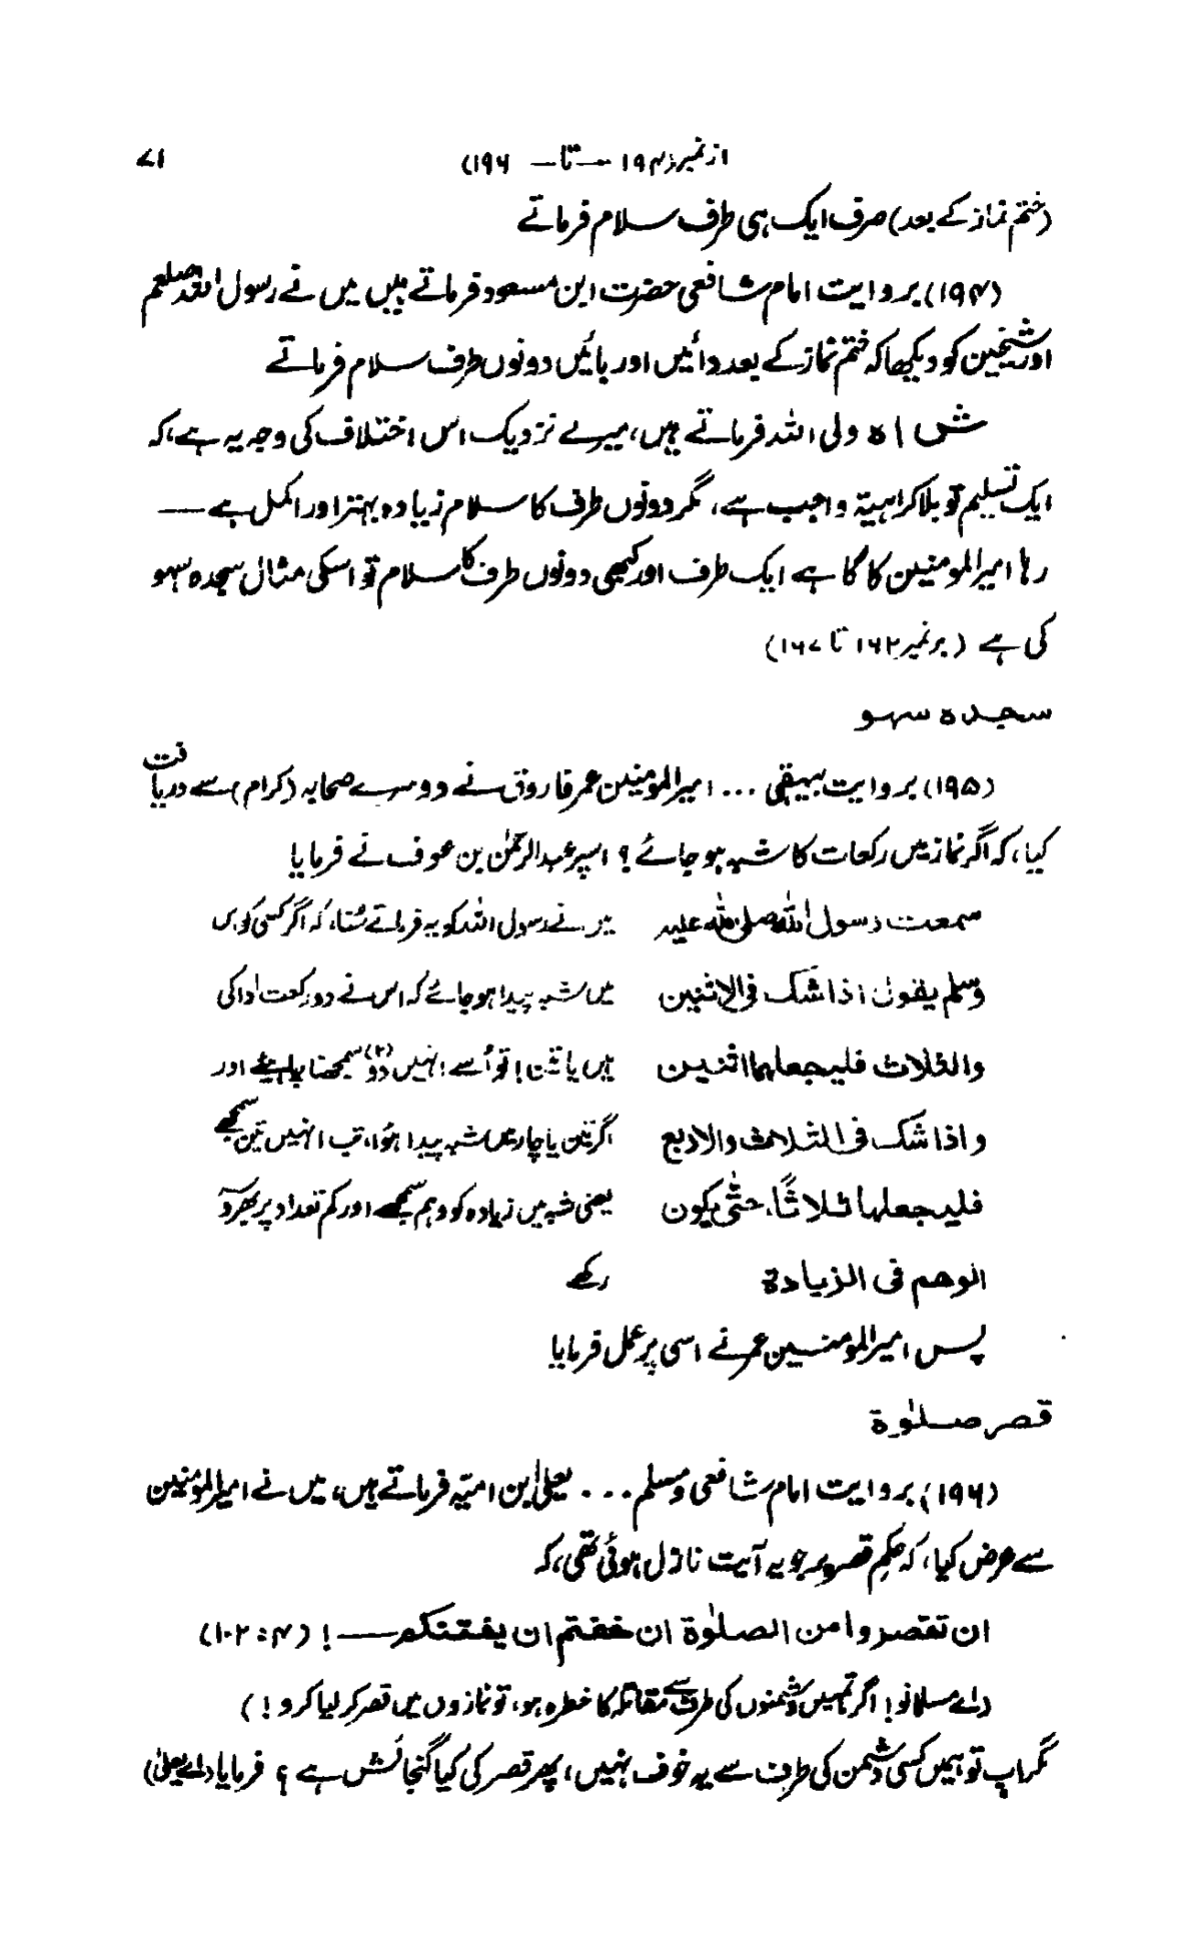 از نمبر (۱۹۴ — تا — ۱۹۶) ۷۱
(ختم نماز کے بعد) صرف ایک ہی طرف سلام فرماتے
(۱۹۴) بروایت امام شافعی حضرت ابن مسعود فرماتے ہیں میں نے رسول اللہ صلعم
اور شیخین کو دیکھا کہ ختم نماز کے بعد دائیں اور بائیں دونوں طرف سلام فرماتے
شاہ ولی اللہ فرماتے ہیں، میرے نزدیک اس اختلاف کی وجہ یہ ہے، کہ
ایک تسلیم تو بلا کراہیۃ واجب ہے، مگر دونوں طرف کا سلام زیادہ بہتر اور اکمل ہے —
رہا امیر المومنین کا گاہے ایک طرف اور کبھی دونوں طرف کا سلام تو اسکی مثال سجدہ سہو
کی ہے (بر نمبر ۱۶۲ تا ۱۶۷)
سجدہ سہو
(۱۹۵) بروایت بیہقی ... امیر المومنین عمر فاروق نے دوسرے صحابہ (کرام) سے دریافت
کیا، کہ اگر نماز میں رکعات کا شبہ ہو جائے؟ اسپر عبدالرحمٰن بن عوف نے فرمایا
سمعت رسول اللہ صلی اللہ علیہ میں نے رسول اللہ کو یہ فرماتے سُنا، کہ اگر کسی کو اس
وسلم یقول اذا شک فی الاثنین میں شبہ پیدا ہو جائے کہ اس نے دو رکعت ادا کی
والثلاث فلیجعلہما اثنین ہیں یا تین! تو اُسے انہیں دو (۲) سمجھنا چاہیئے اور
واذا شک فی الثلاث والاربع اگر تین یا چار میں شبہ پیدا ہُوا، تب انہیں تین سمجھے
فلیجعلہا ثلاثًا، حتّٰی یکون یعنی شبہ میں زیادہ کو وہم سمجھے اور کم تعداد پر بھروسہ
الوھم فی الزیادۃ رکھے
پس امیر المومنین عمر نے اسی پر عمل فرمایا
قصر صلٰوۃ
(۱۹۶) بروایت امام شافعی و مسلم ... یعلیٰ ابن امیّہ فرماتے ہیں، میں نے امیر المؤمنین
سے عرض کیا، کہ حکمِ قصر پر جو یہ آیت نازل ہوئی تھی، کہ
ان تقصروا من الصلٰوۃ ان خفتم ان یفتنکم — ! (۴ : ۱۰۲)
(اے مسلمانو! اگر تمہیں دشمنوں کی طرف سے مقاتلہ کا خطرہ ہو، تو نمازوں میں قصر کر لیا کرو!)
مگر اب تو ہمیں کسی دشمن کی طرف سے یہ خوف نہیں، پھر قصر کی کیا گنجائش ہے؟ فرمایا (اے یعلیٰ)